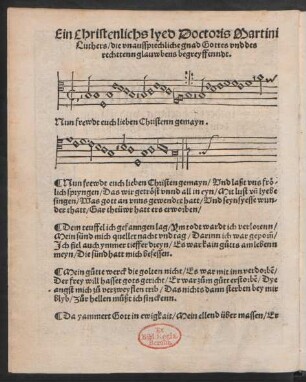 Ein Christenlichs lyed Doctoris Martini
Luthers/ die vnaussprechliche gnad Gottes vnd des
rechtenn glauwbens begreyffenndt.
Nun frewdt euch lieben Christenn gemayn.
¶ Nun frewdt euch lieben Christen gemayn/ Vnd laßt vns frö
lich springen/ Das wir getröst vnnd all in eyn/ Mit lust vñ lyebe
singen/ Was gott an vnns gewendet hatt/ Vnd seyn syesse wun
der thatt/ Gar theüwr hatt ers erworben/
¶ Dem teuffel ich gefanngen lag/ Ym tode wardt ich verlorenn/
Mein sünd mich quellet nacht vnd tag/ Darinn ich war geporn/
Ich fiel auch ymmer tieffer dreyn/ Es war kain gütts am leben
meyn/ Die sünd hatt mich besessen.
¶ Mein gütte werck die golten nicht/ Es war mit inn verdorbẽ/
Der frey will hasset gots gericht/ Er war zum gůt erstorbẽ/ Dye
angst mich zů verzweyflen treib/ Das nichts dann sterben bey mir
blyb/ Zůr hellen můst ich sincken.
¶ Da yammert Gott in ewigkait/ Mein ellend über massen/ Er